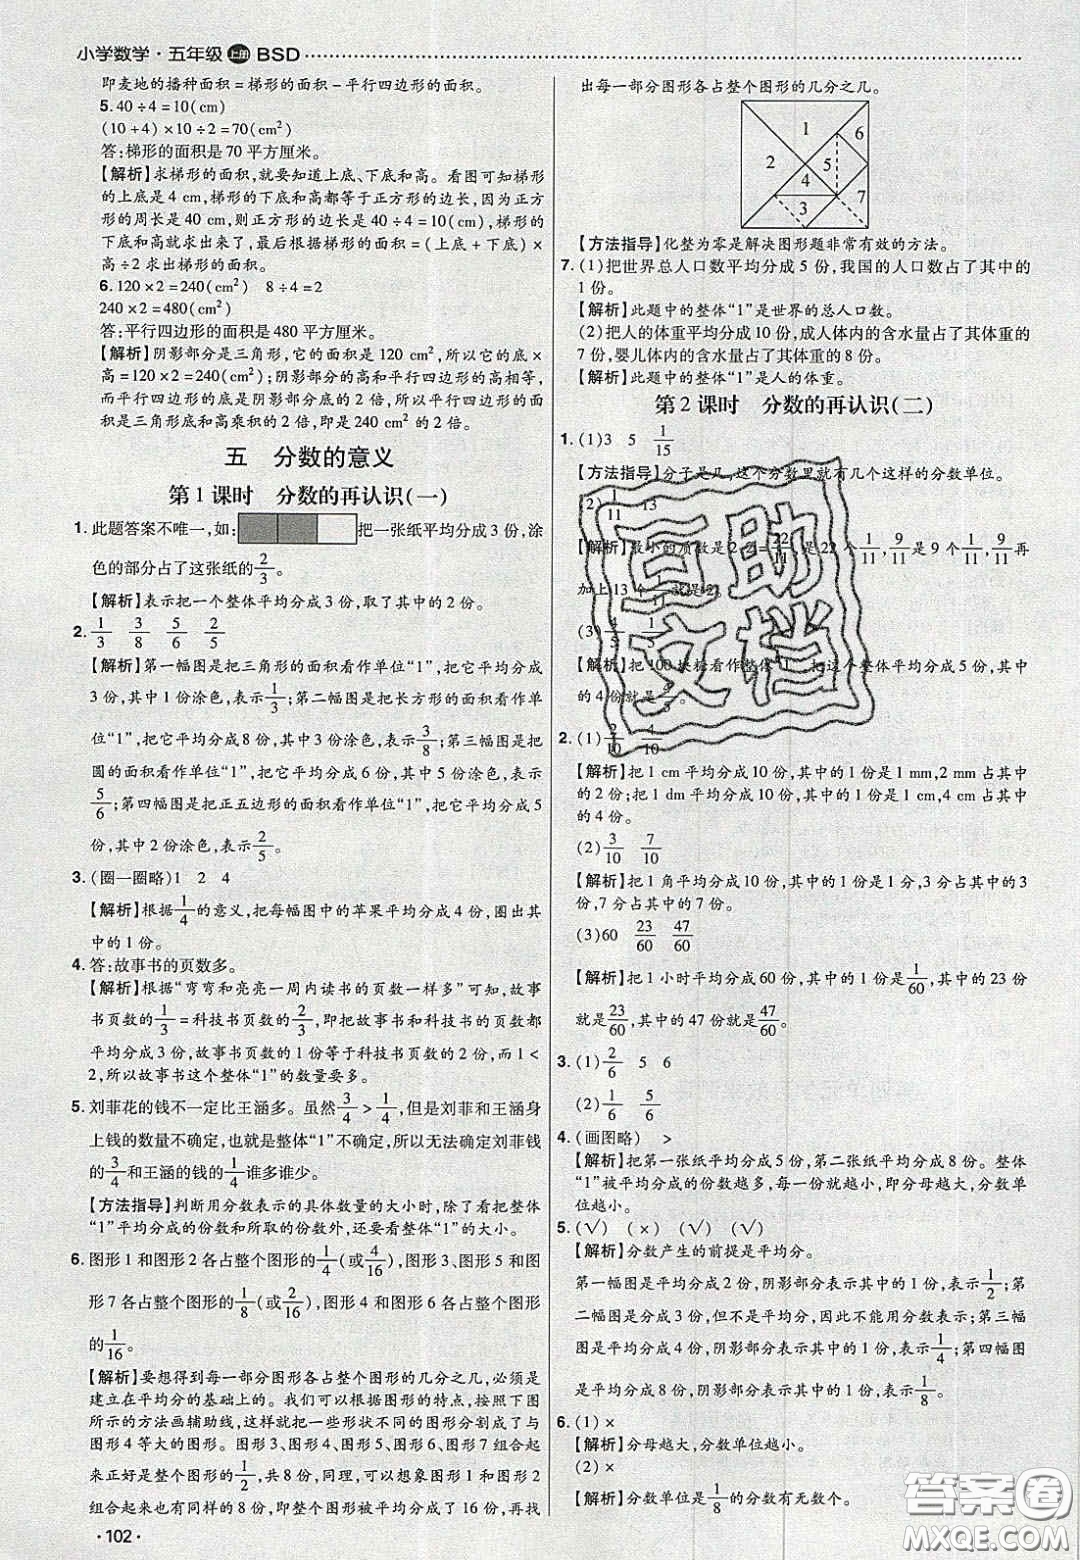 小学数学·五年级 上册 BSD
即麦地的播种面积=梯形的面积-平行四边形的面积。
5. 40÷4=10(cm)
(10+4)×10÷2=70(cm²)
答:梯形的面积是70平方厘米。
【解析】求梯形的面积,就要知道上底、下底和高。看图可知梯形
的上底是4 cm,梯形的下底和高都等于正方形的边长,因为正方
形的周长是40 cm,则正方形的边长是40÷4=10(cm),梯形的
下底和高就求出来了,最后根据梯形的面积=(上底+下底)×
高÷2求出梯形的面积。
6. 120×2=240(cm²) 8÷4=2
240×2=480(cm²)
答:平行四边形的面积是480平方厘米。
【解析】阴影部分是三角形,它的面积是120 cm²,所以它的底×
高=120×2=240(cm²);阴影部分的高和平行四边形的高相等,
而平行四边形的底是阴影部分底的2倍,所以平行四边形的面积
是三角形底高乘积的2倍,即是240 cm²的2倍。
五 分数的意义
第1课时 分数的再认识(一)
1. 此题答案不唯一,如: 把一张纸平均分成3份,涂
色的部分占了这张纸的2/3。
【解析】表示把一个整体平均分成3份,取了其中的2份。
2. 1/3 3/8 5/6 2/5
【解析】第一幅图是把三角形的面积看作单位“1”,把它平均分成
3份,其中1份涂色,表示1/3;第二幅图是把长方形的面积看作单
位“1”,把它平均分成8份,其中3份涂色,表示3/8;第三幅图是把
圆的面积看作单位“1”,把它平均分成6份,其中5份涂色,表示
5/6;第四幅图是把正五边形的面积看作单位“1”,把它平均分成5
份,其中2份涂色,表示2/5。
3. (圈一圈略)1 2 4
【解析】根据1/4的意义,把每幅图中的苹果平均分成4份,圈出其
中的1份。
4. 答:故事书的页数多。
【解析】根据“弯弯和亮亮一周内读书的页数一样多”可知,故事
书页数的1/3=科技书页数的2/3,即把故事书和科技书的页数都
平均分成3份,故事书页数的1份等于科技书页数的2份,而1<
2,所以故事书这个整体“1”的数量要多。
5. 刘菲花的钱不一定比王涵多。虽然3/4>1/4,但刘菲和王涵身
上钱的数量不确定,也就是整体“1”不确定,所以无法确定刘菲钱
的3/4和王涵的钱的1/4谁多谁少。
【方法指导】判断用分数表示的具体数量的大小时,除了看把整体
“1”平均分成的份数和所取的份数外,还要看整体“1”的大小。
6. 图形1和图形2各占整个图形的1/4(或4/16),图形3、图形5和图
形7各占整个图形的1/8(或2/16),图形4和图形6各占整个图形
的1/16。
【解析】要想得到每一部分图形各占整个图形的几分之几,必须是
建立在平均分的基础上的。我们可以根据图形的特点,按照下图
所示的方法画辅助线,就可以把一些形状不同的图形分割成了与
图形4等大的图形。图形3、图形4、图形5、图形6、图形7组合起
来正好是整个图形的1/2,共8份,同理,可以想象图形1和图形2
组合起来也有同样的8份,即整个图形被平均分成了16份,再找
·102·
出每一部分图形各占整个图形的几分之几。
1
2
3
4
5
6
7
【方法指导】化整为零是解决图形题非常有效的方法。
7. (1)把世界总人口数平均分成5份,我国的人口数占了其中的
1份。
【解析】此题中的整体“1”是世界的总人口数。
(2)把人的体重平均分成10份,成人体内的含水量占了其体重的
7份,婴儿体内的含水量占了其体重的8份。
【解析】此题中的整体“1”是人的体重。
第2课时 分数的再认识(二)
1. (1)3 5 1/15
【方法指导】分子是几,这个分数里就有几个这样的分数单位。
(2)1/11 13
【解析】最小的质数是2,2=22/11,是22个1/11,9/11是9个1/11,9/11再
加上13个1/11就是2。
(3)4/5 1/5
【解析】把100块糖看作整体“1”,把这个整体平均分成5份,其中
的4份就是4/5。
2. (1)2/10 4/10
【解析】把1 cm平均分成10份,其中的1份是1 mm,2 mm占其中
的2份;把1 dm平均分成10份,其中的1份是1 cm,4 cm占其中
的4份。
(2)3/10 7/10
【解析】把1角平均分成10份,其中的1份是1分,3分占其中的3
份,7分占其中的7份。
(3)60 23/60 47/60
【解析】把1小时平均分成60份,其中的1份是1/60,其中的23份
就是23/60,其中的47份就是47/60。
3. (1)2/6 5 6
(2)1/6 5/6
4. (画图略) >
【解析】把第一张纸平均分成5份,第二张纸平均分成8份。整体
“1”被平均分成的份数越多,每一份就越小,即分母越大,分数单
位越小。
5. (√) (×) (√) (√)
【解析】分数产生的前提是平均分。
第一幅图是平均分成2份,阴影部分表示其中的1份,表示1/2;第
二幅图是分成3份,但不是平均分,因此不能用分数表示;第三幅
图是平均分成4份,阴影部分表示其中的1份,表示1/4;第四幅图
是平均分成8份,阴影部分表示其中的1份,表示1/8。
6. (1)×
【解析】分母越大,分数单位越小。
(2)×
【解析】分数单位是1/8的分数有无数个。
百助
文档
答案圈
MXQE.COM